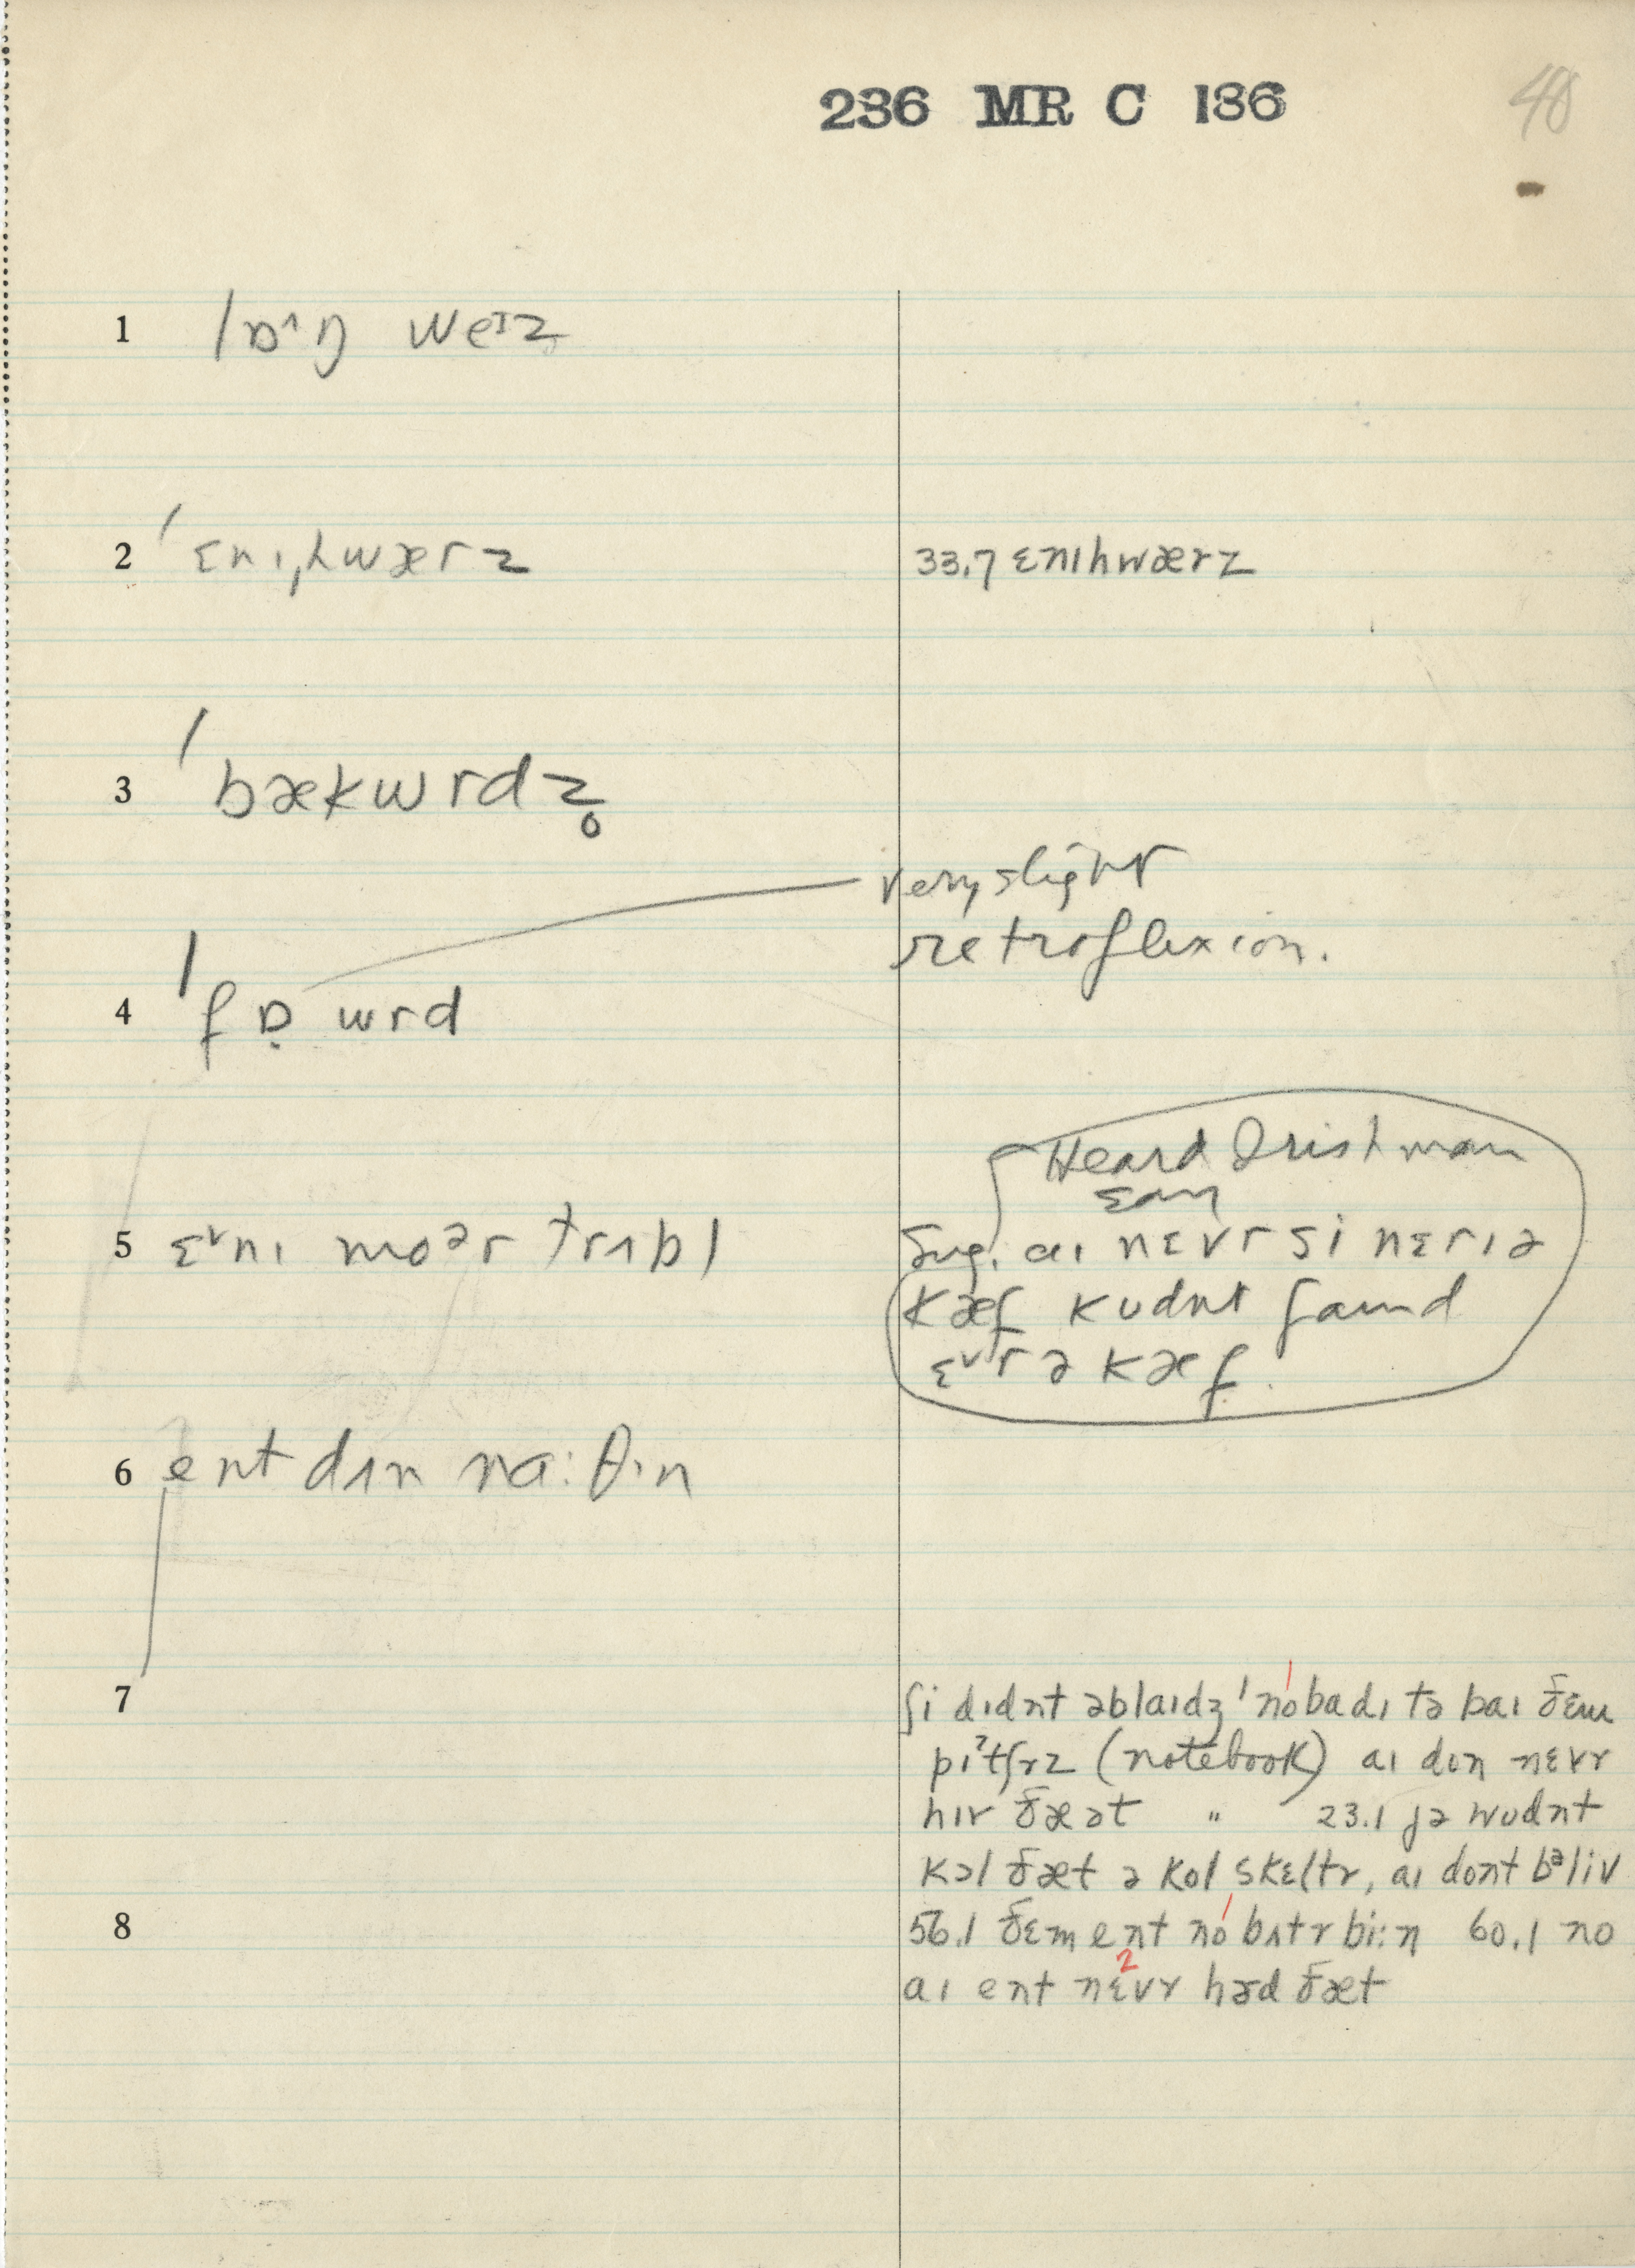 236 MR C 136
40
1 lɒ˄ŋ weɪz
2 ˈɛnɪˌhwærz
33.7 ɛnɪhwærz
3 ˈbækwrdz̥
very slight
retroflexion.
4 ˈfɒ̣wrd
Heard Irishman
say
5 ɛ˅nɪ moər trʌbl
Sug. aɪ nɛvr si nɛrɪə
kæf kudnt faɪnd
ɛ˅rə kæf
6 ent dʌn nɑ:θɪn
7
ʃi dɪdnt əblaɪdʒ ˈnobadɪ tə baɪ ðɛm
pɪˀtʃrz (notebook) aɪ don nɛvr
hɪr ðæət " 23.1 jə wudnt
kɔl ðæt ə kol skɛltr, aɪ dont bᵊliv
8
56.1 ðɛm ent no bʌtr bi:n 60.1 no
aɪ ent nɛvr hɜd ðæt
1
1
2